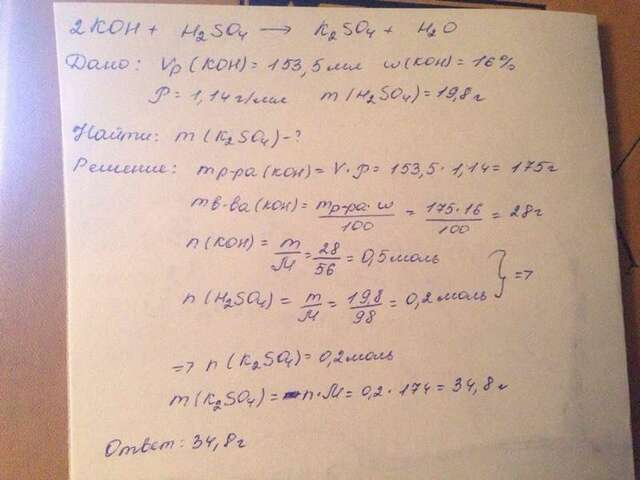 2KOH + H₂SO₄ → K₂SO₄ + H₂O
Дано: Vр(KOH) = 153,5 мл w(KOH) = 16%
P = 1,14 г/мл m(H₂SO₄) = 19,8 г
Найти: m(K₂SO₄) - ?
Решение: mр-ра(KOH) = V·P = 153,5·1,14 = 175 г
mв-ва(KOH) = mр-ра·w/100 = 175·16/100 = 28 г
n(KOH) = m/M = 28/56 = 0,5 моль
n(H₂SO₄) = m/M = 19,8/98 = 0,2 моль } =>
=> n(K₂SO₄) = 0,2 моль
m(K₂SO₄) = n·M = 0,2·174 = 34,8 г
Ответ: 34,8 г